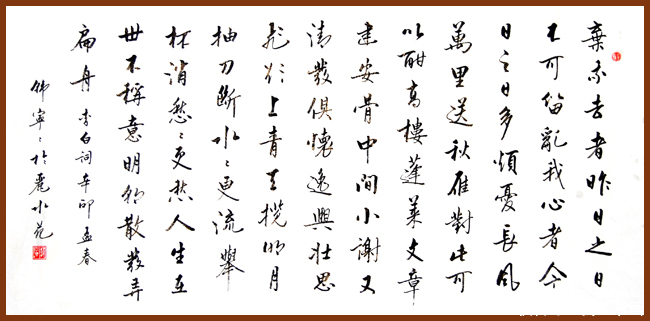 棄我去者昨日之日
不可留亂我心者今
日之日多煩憂長風
萬里送秋雁對此可
以酣高樓蓬萊文章
建安骨中間小謝又
清發俱懷逸興壯思
飛欲上青天攬明月
抽刀斷水々更流舉
杯消愁々更愁人生在
世不稱意明朝散發弄
扁舟 李白詞辛卯孟春
寧々於麗水苑